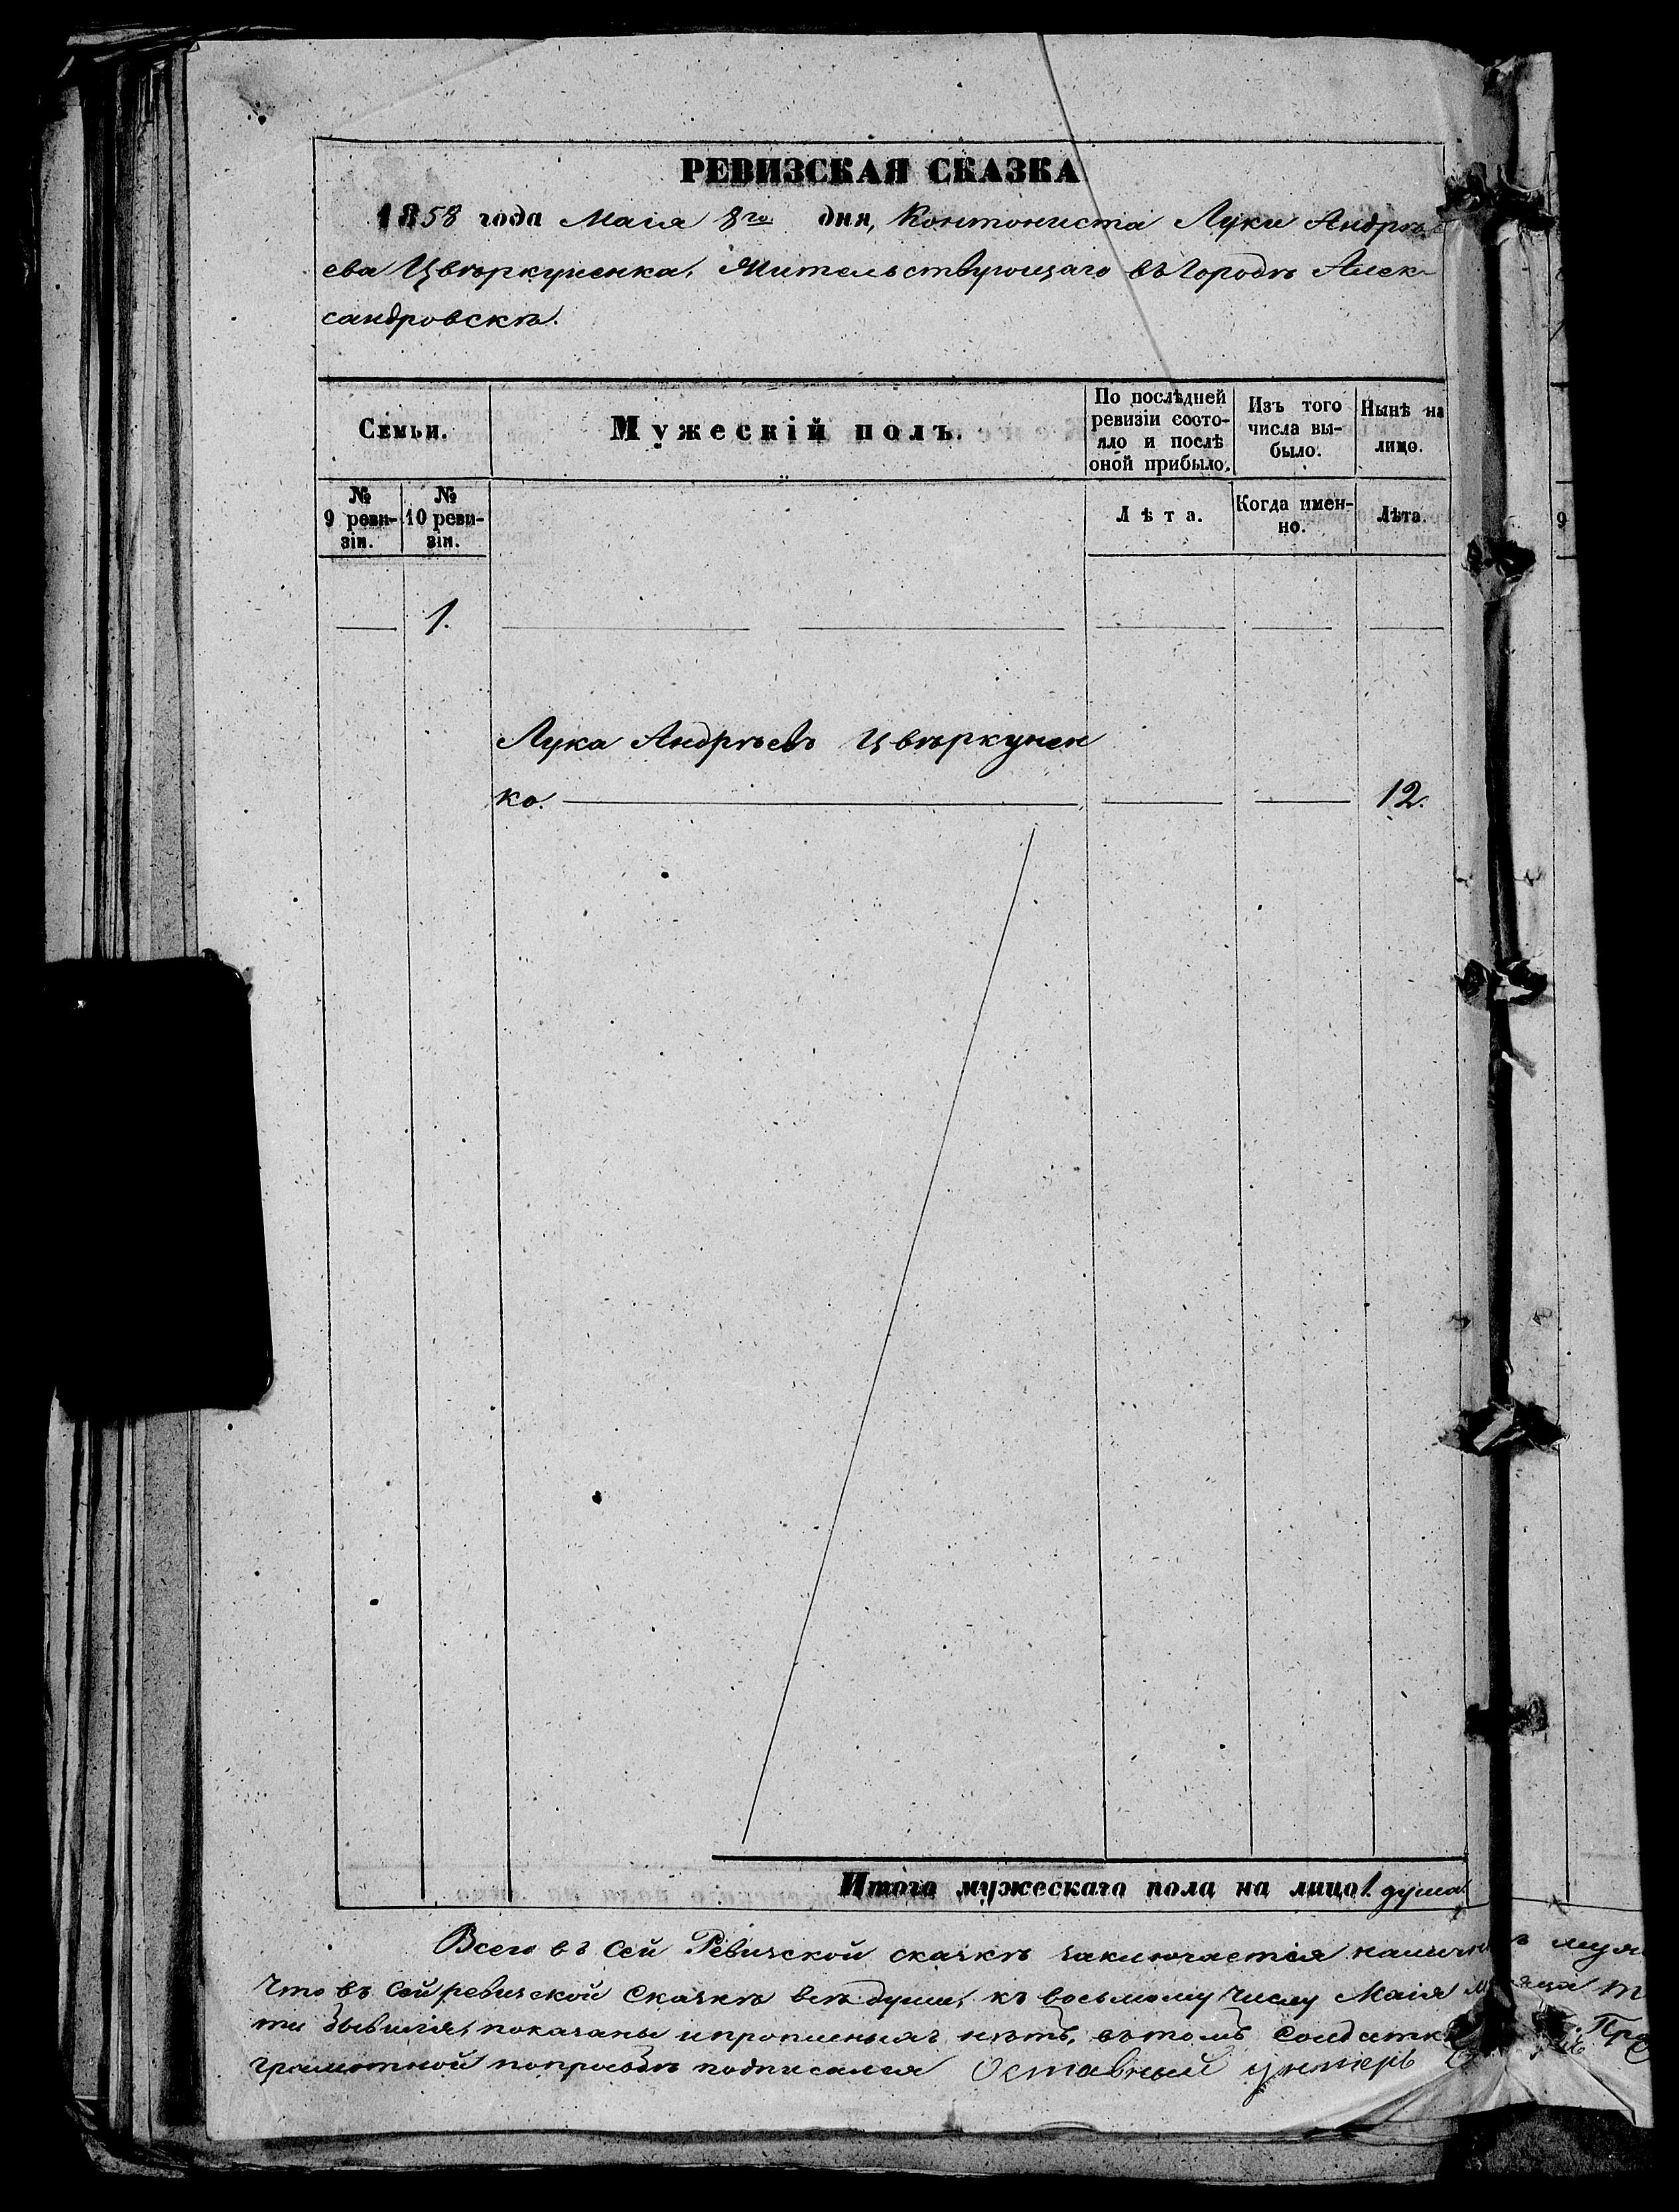 РЕВИЗСКАЯ СКАЗКА
1858 года Маія 8го дня, Контониста Луки Андрѣ
ева Цвѣркуненка, Жительствующаго въ городѣ Алек-
сандровскѣ.
Семьи.
Мужескій полъ.
По послѣдней
ревизіи состо-
яло и послѣ
оной прибыло.
Изъ того
числа вы-
было.
Нынѣ на
лицо.
№
9 реви-
зіи.
№
10 реви-
зіи.
Лѣта.
Когда имен-
но.
Лѣта.
9
1.
Лука Андрѣевъ Цвѣркунен
ко. 12.
Итого мужескаго пола на лицо 1. душа.
Всего въ сей Ревизской сказкѣ заключается
Что въ сей ревизской сказкѣ всѣ души, къ восьмому числу Маія
показаны и прописныхъ нѣтъ, въ томъ
грамотной по прозбѣ подписался Отставный унтеръ